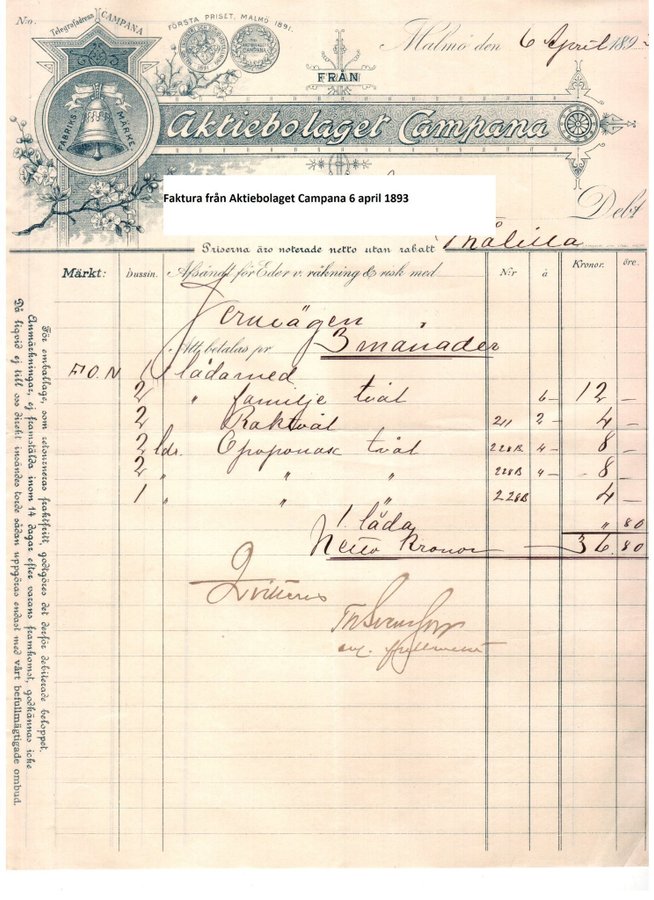 N:o
Telegrafadress CAMPANA
FÖRSTA PRIS L.T. MALMÖ 1891.
Malmö den 6 April 189
FRÅN
FABRIKS MÄRKE
Aktiebolaget Campana
Faktura från Aktiebolaget Campana 6 april 1893
Debt
Priserna äro noterade netto utan rabatt
Märkt: Dussin. Afsändt för Eder v. räkning & risk med N:r à Kronor. öre.
Jernvägen
Att betalas pr 3 månader
1 låda med
2 " familje tvål 6 - 12 -
2 Raktvål 211 2 - 4 -
2 ldr. Opoponax tvål 228B 4 - 8 -
2 " " " 228B 4 - 8 -
1 " " " 228B 4 -
1 låda " 80
Netto Kronor 36.80
Qvitteras
Th Svensson
För emballage, som retourneras fraktfritt, godtgöres det derför debiterade beloppet.
Anmärkningar, ej framstälda inom 14 dagar efter varans framkomst, godkännas icke
Då liqvid ej till oss direkt insändes torde sådan uppgöras endast med vårt befullmägtigade ombud.